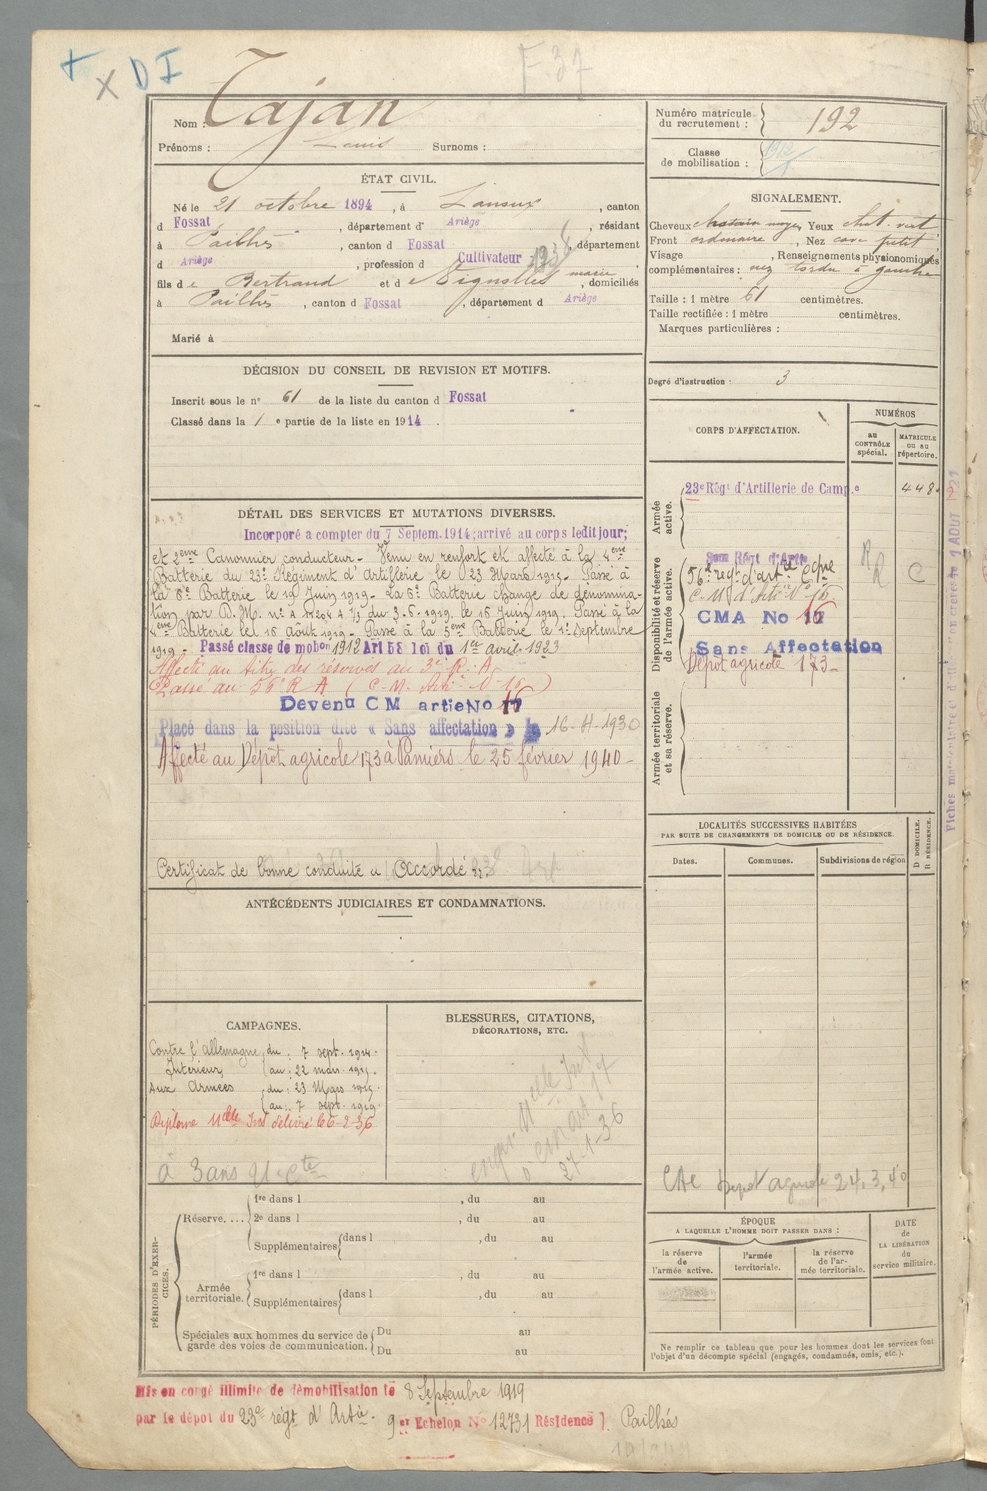 + X D I
F 37
Nom : Tajan
Prénoms : Louis Surnoms :
Numéro matricule du recrutement : 192
Classe de mobilisation : 1912
ÉTAT CIVIL.
Né le 21 octobre 1894, à Lanoux, canton
d Fossat, département d' Ariège, résidant
à Pailhès, canton d Fossat, département
d Ariège, profession d Cultivateur
fils d e Bertrand et d e marie, domiciliés
à Pailhès, canton d Fossat, département d Ariège
Marié à
SIGNALEMENT.
Cheveux chatain moyen Yeux chat. vert
Front ordinaire, Nez cave petit
Visage , Renseignements physionomiques
complémentaires : nez tordu à gauche
Taille : 1 mètre 61 centimètres.
Taille rectifiée : 1 mètre centimètres.
Marques particulières :
Degré d'instruction : 3
DÉCISION DU CONSEIL DE REVISION ET MOTIFS.
Inscrit sous le n° 61 de la liste du canton d Fossat
Classé dans la 1 e partie de la liste en 1914.
CORPS D'AFFECTATION.
NUMÉROS
au CONTRÔLE spécial.
MATRICULE ou au répertoire.
Armée active.
23e Régt d'Artillerie de Camp.e 448
Disponibilité et réserve de l'armée active.
56e reg. d'art. de cpne
C. M. d'Artie N° 16
CMA No 16
Sans Affectation
Dépot agricole 173
RR C
Armée territoriale et sa réserve.
DÉTAIL DES SERVICES ET MUTATIONS DIVERSES.
Incorporé a compter du 7 Septem. 1914; arrivé au corps ledit jour;
et 2ème Canonnier conducteur - Venu en renfort et affecté à la 4ème
Batterie du 23e Régiment d'Artillerie le 23 Mars 1915 - Passé à
la 6e Batterie le 19 Juin 1919 - La 6e Batterie change de dénomina-
tion par D. M. n° A 11204 A 1/3 du 3-6-1919, le 16 Juin 1919. Passé à la
4ème Batterie le 16 août 1919 - Passé à la 5ème Batterie le 1er Septembre
1919 - Passé classe de mobon 1912 Art 58 loi du 1er avril 1923
Affecté au titre des réserves au 3e R. A.
Passé au 56e R A ( C. M. Artie N° 16 )
Devenu CM artie No 16
Placé dans la position dite « Sans affectation » le 16-4-1930
Affecté au Dépôt agricole 173 à Pamiers le 25 février 1940 -
Certificat de bonne conduite « Accordé »
ANTÉCÉDENTS JUDICIAIRES ET CONDAMNATIONS.
LOCALITÉS SUCCESSIVES HABITÉES
PAR SUITE DE CHANGEMENTS DE DOMICILE OU DE RÉSIDENCE.
Dates. Communes. Subdivisions de région
D DOMICILE.
R RÉSIDENCE.
dépot agricole 24.3.40
CAMPAGNES.
Contre l'Allemagne
Intérieur du : 7 sept. 1914.
au : 22 mars 1915.
Aux Armées du : 23 Mars 1915.
au : 7 sept. 1919.
Diplôme délivré le 6-2-36
à 3 ans
BLESSURES, CITATIONS,
DÉCORATIONS, ETC.
27-1-36
PÉRIODES D'EXERCICES.
Réserve.... 1re dans l , du au
2e dans l , du au
Supplémentaires dans l , du au
Armée territoriale. 1re dans l , du au
Supplémentaires dans l , du au
Spéciales aux hommes du service de garde des voies de communication. Du au
Du au
ÉPOQUE
A LAQUELLE L'HOMME DOIT PASSER DANS :
la réserve de l'armée active.
l'armée territoriale.
la réserve de l'armée territoriale.
DATE de LA LIBÉRATION du service militaire.
Ne remplir ce tableau que pour les hommes dont les services font
l'objet d'un décompte spécial (engagés, condamnés, omis, etc.).
Mis en congé illimité de démobilisation le 8 Septembre 1919
par le dépot du 23e régt d'Artie. 9 er Echelon No 12731 Résidence Pailhès